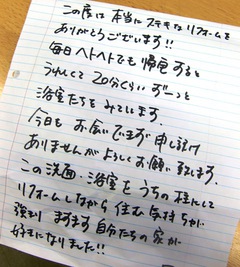 この度は本当にステキなリフォームを
ありがとうございます!!
毎日ヘトヘトでも帰宅すると
うれしくて20分くらいずーっと
浴室たちをみています.
今日もお会いできず申し訳
ありませんがよろしくお願い致します.
この洗面・浴室をうちの様にして
リフォームしながら住む気持ちが
強まり ますます自分たちの家が
好きになりました!!